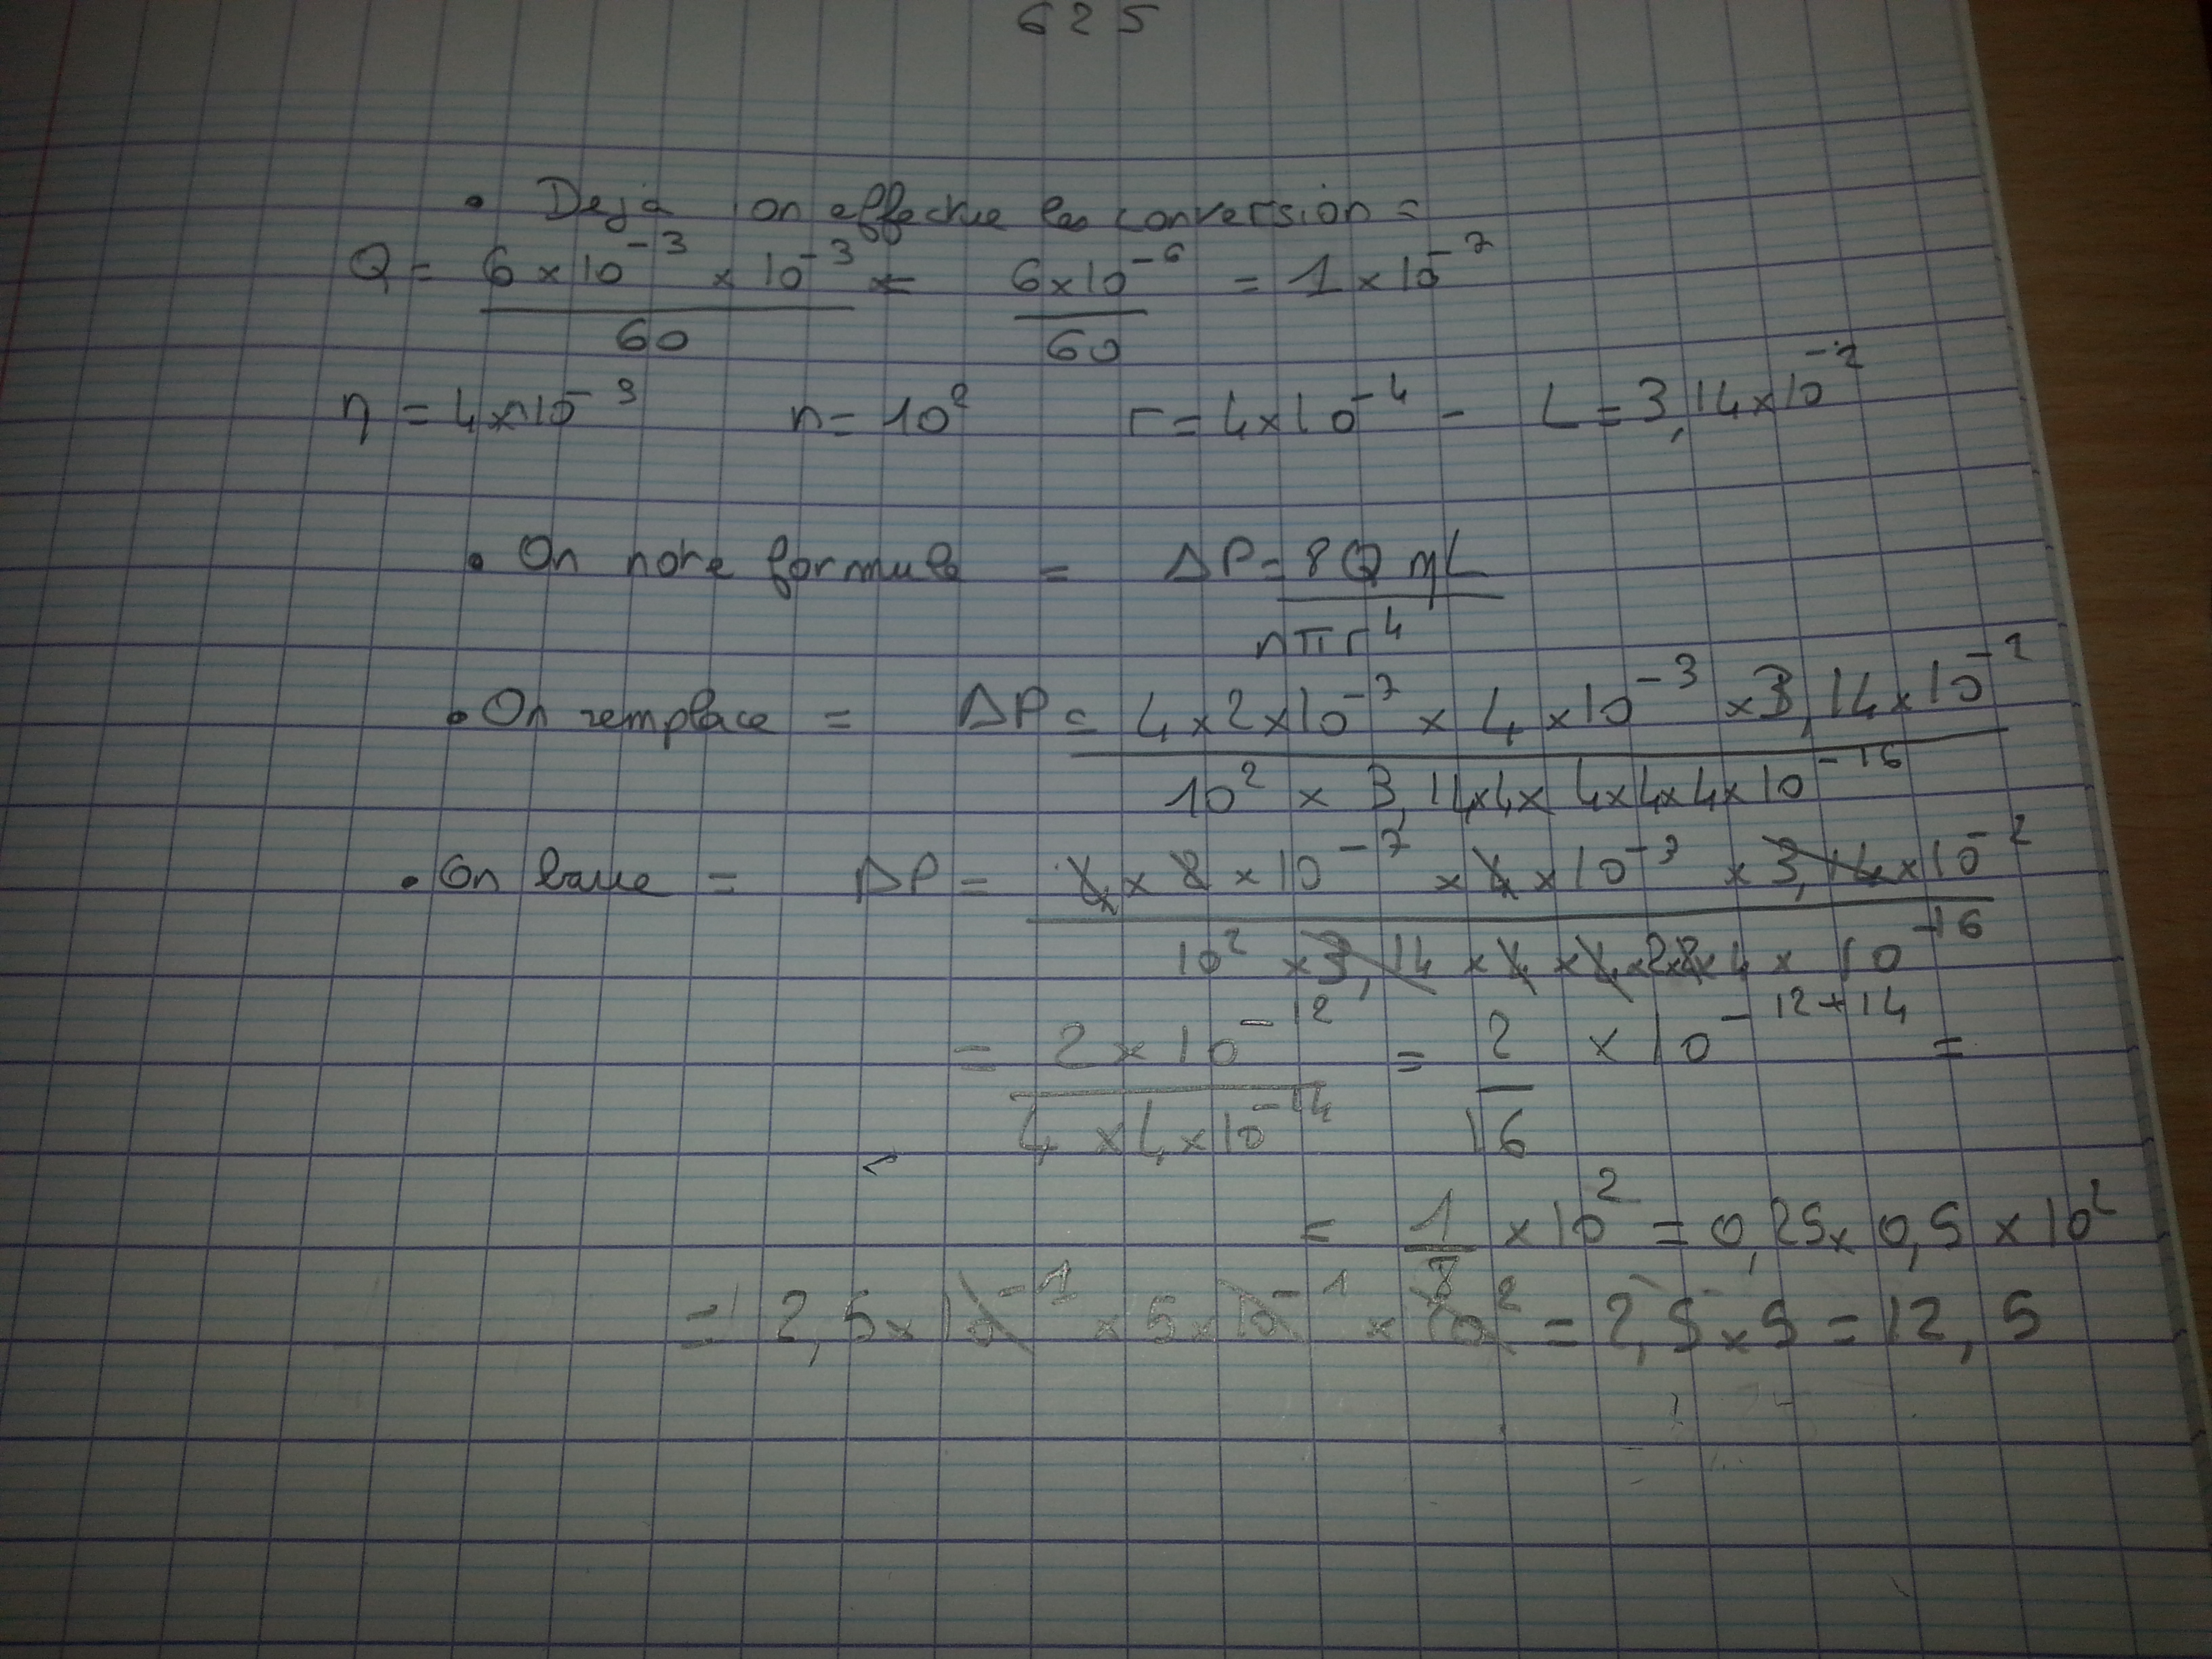 625
• Deja on effectue les conversion =
Q = 6 x 10⁻³ x 10⁻³ / 60 = 6 x 10⁻⁶ / 60 = 1 x 10⁻⁷
η = 4 x 10⁻³ n = 10² r = 4 x 10⁻⁴ - L = 3,14 x 10⁻²
• On note formule = ΔP = 8QηL / nπr⁴
• On remplace = ΔP = 4 x 2 x 10⁻⁷ x 4 x 10⁻³ x 3,14 x 10⁻² / 10² x 3,14 x 4 x 4 x 4 x 4 x 10⁻¹⁶
• On barre = ΔP = 4 x 2 x 10⁻⁷ x 4 x 10⁻³ x 3,14 x 10⁻² / 10² x 3,14 x 4 x 4 x 2 x 2 x 4 x 10⁻¹⁶
= 2 x 10⁻¹² / 4 x 4 x 10⁻¹⁴ = 2 / 16 x 10⁻¹²⁺¹⁴ =
= 1 / 8 x 10² = 0,25 x 0,5 x 10²
= 2,5 x 10⁻¹ x 5 x 10⁻¹ x 10² = 2,5 x 5 = 12,5